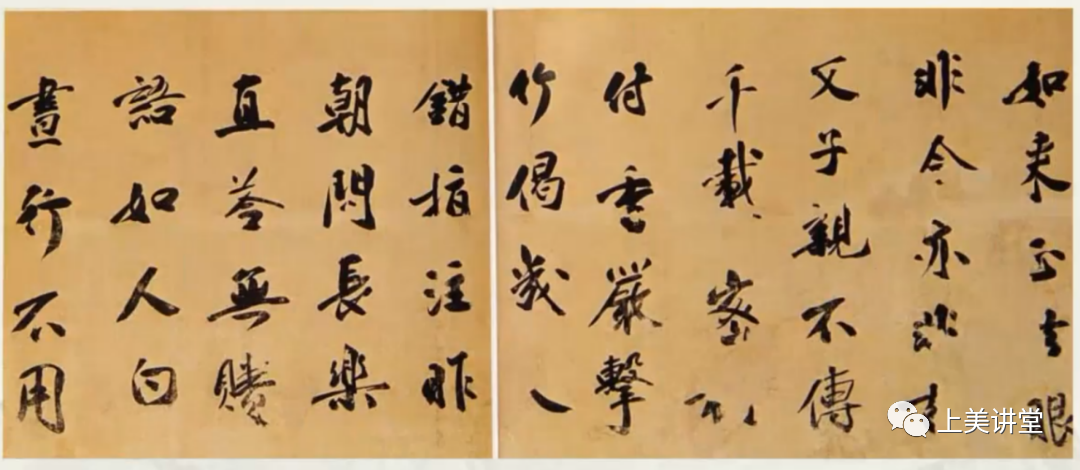 如来正法眼
非今亦非古
父子親不傳
千載密相
付香嚴擊
竹偈幾人
錯指注昨
朝問長樂
直荅無賸
語如人白
晝行不用
上美讲堂